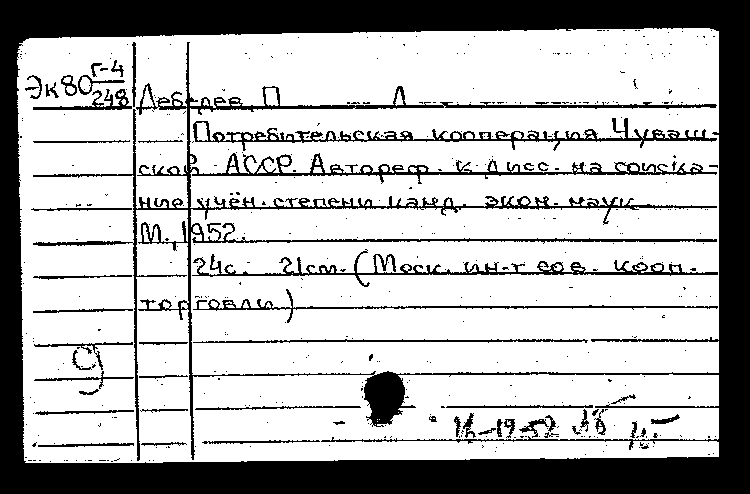 Эк80 Г-4
248
Лебедев, П Л
Потребительская кооперация Чуваш-
ской АССР. Автореф. к дисс. на соиска-
ние учён. степени канд. экон. наук
М., 1952.
24с. 21см. (Моск. ин-т сов. кооп.
торговли)
9
16-19-52